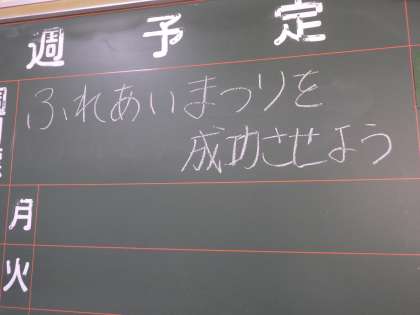 週予定
ふれあいまつりを
成功させよう
月
火